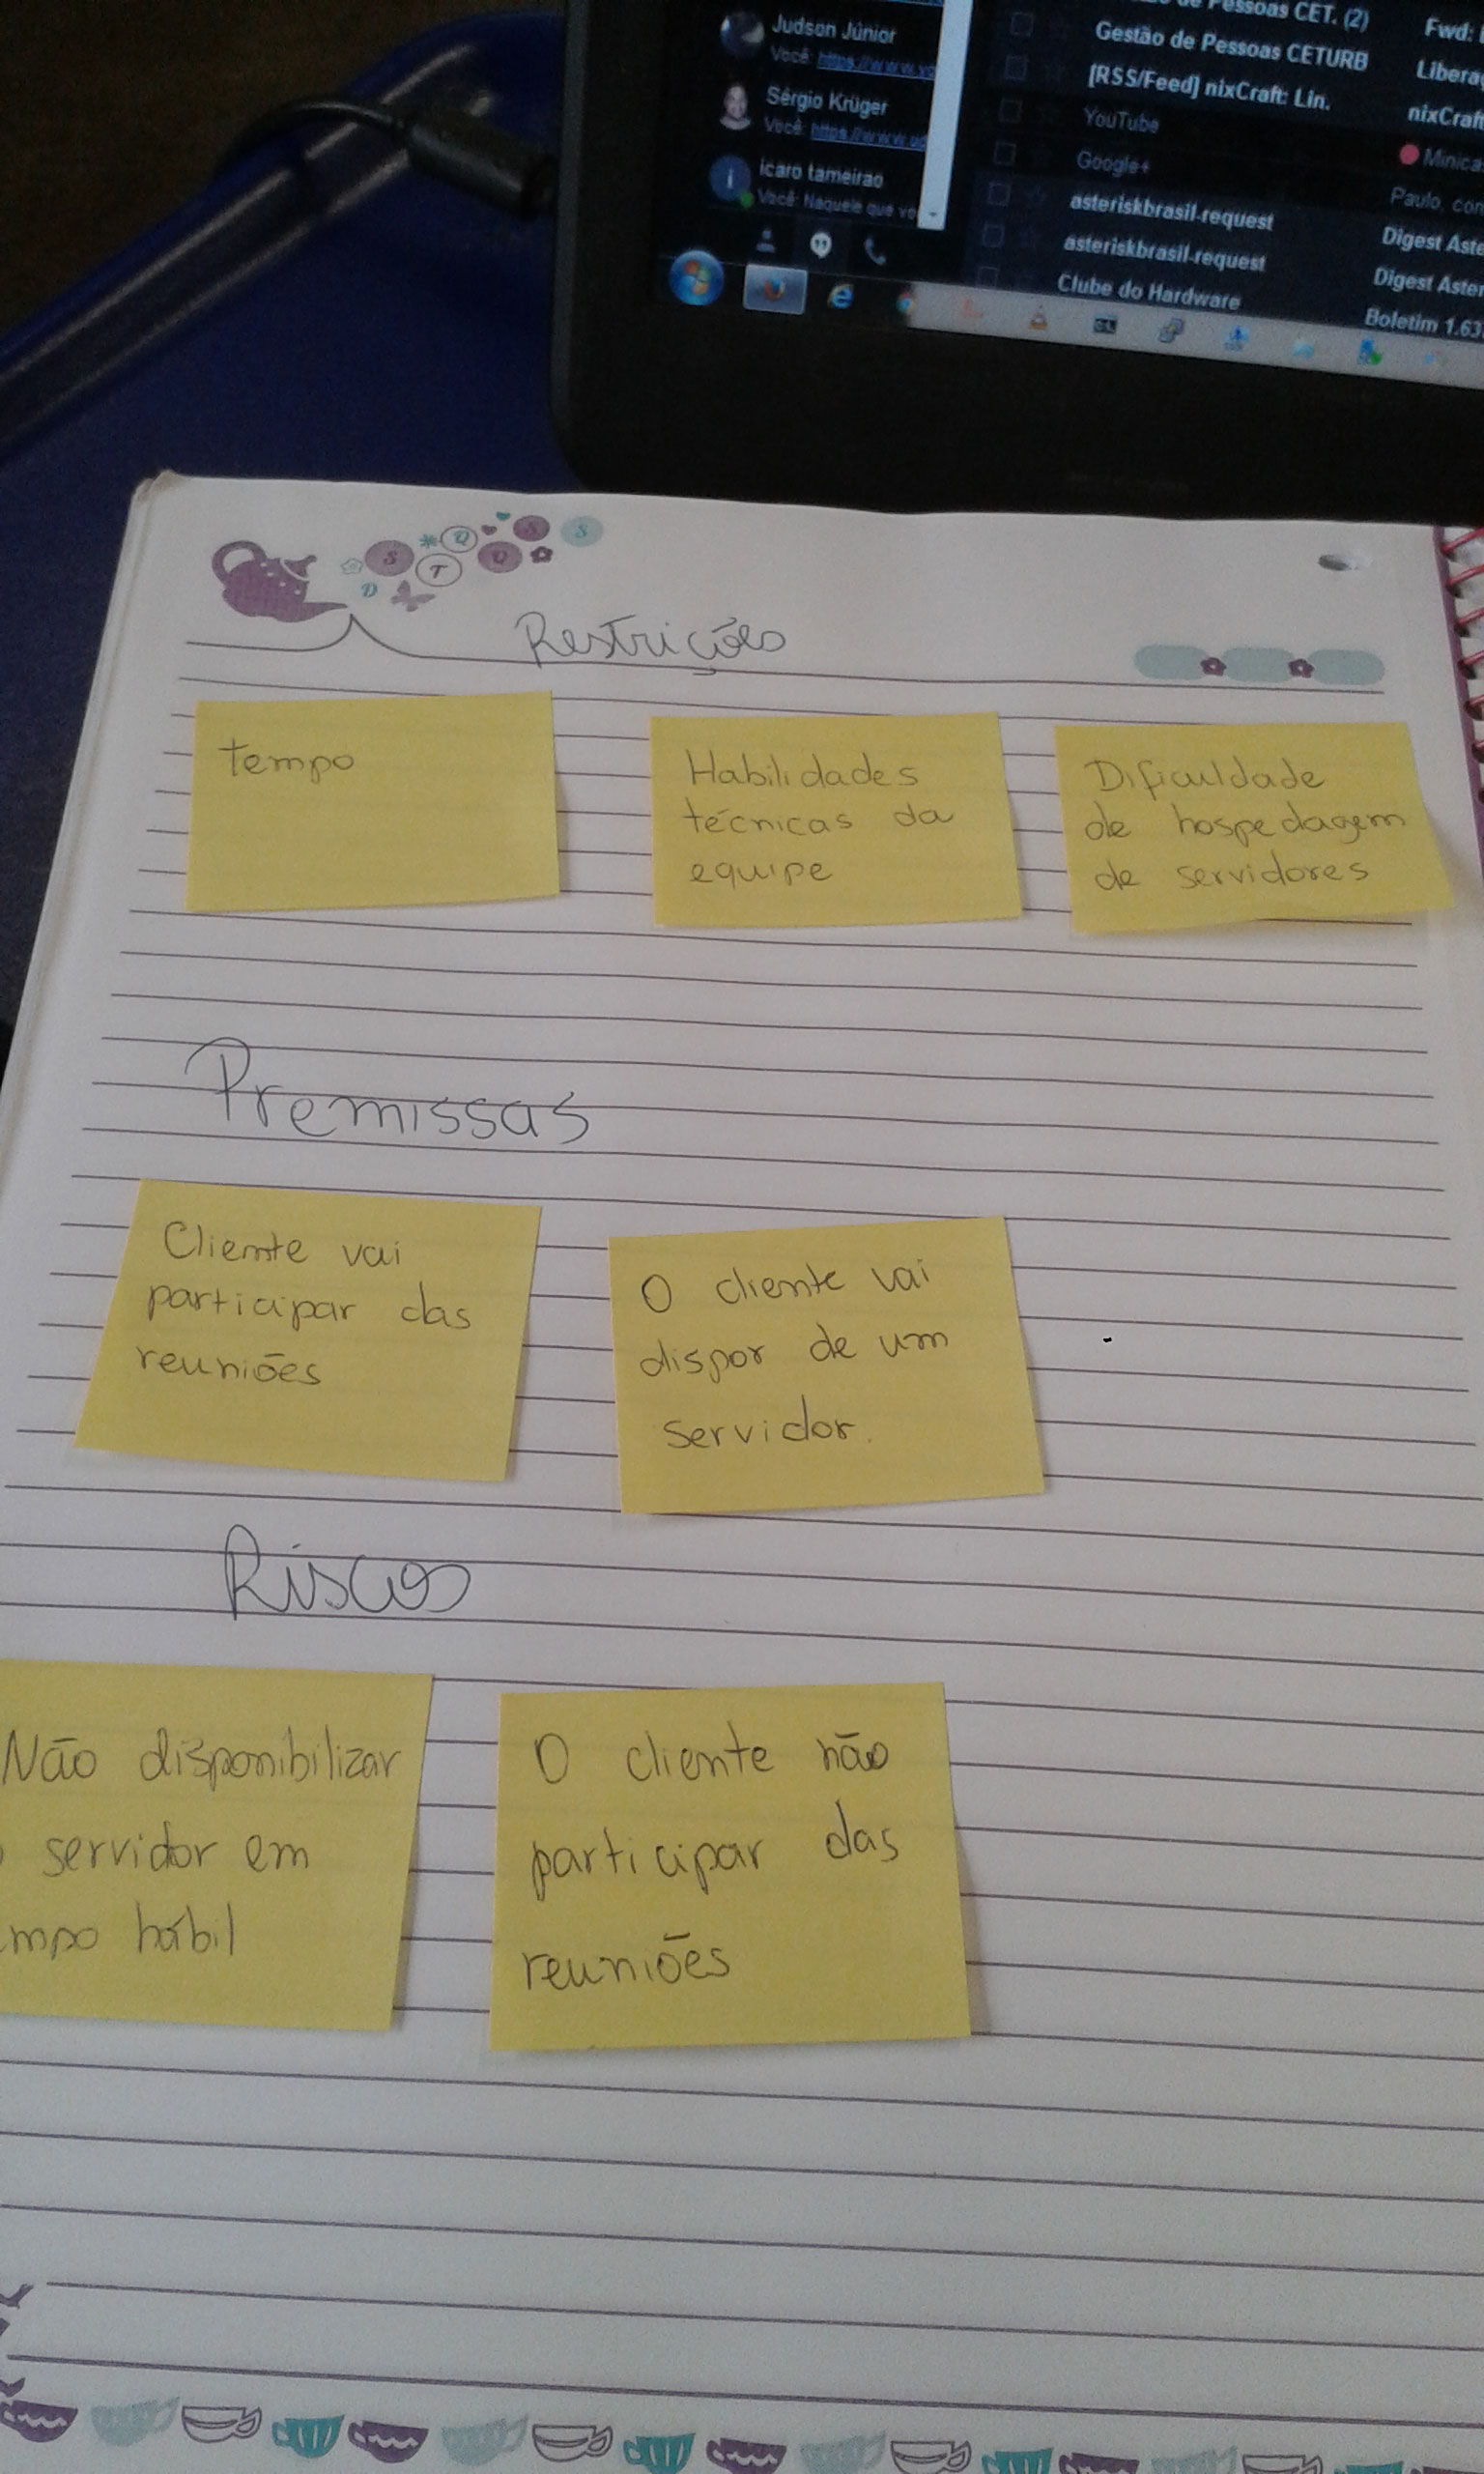 Judson Júnior
Você: https://www.yo
Sérgio Krüger
Você: https://www.ud
ícaro tameirao
Você: Naquele que vo
de Pessoas CET. (2)
Fwd:
Gestão de Pessoas CETURB
Libera
[RSS/Feed] nixCraft: Lin.
nixCraft
YouTube
Minica
Google+
Paulo, con
asteriskbrasil-request
Digest Aste
asteriskbrasil-request
Digest Aster
Clube do Hardware
Boletim 1.63
D S T Q Q S S
Restrições
tempo
Habilidades
técnicas da
equipe
Dificuldade
de hospedagem
de servidores
Premissas
Cliente vai
participar das
reuniões
O cliente vai
dispor de um
servidor.
Riscos
Não disponibilizar
o servidor em
mpo hábil
O cliente não
participar das
reuniões